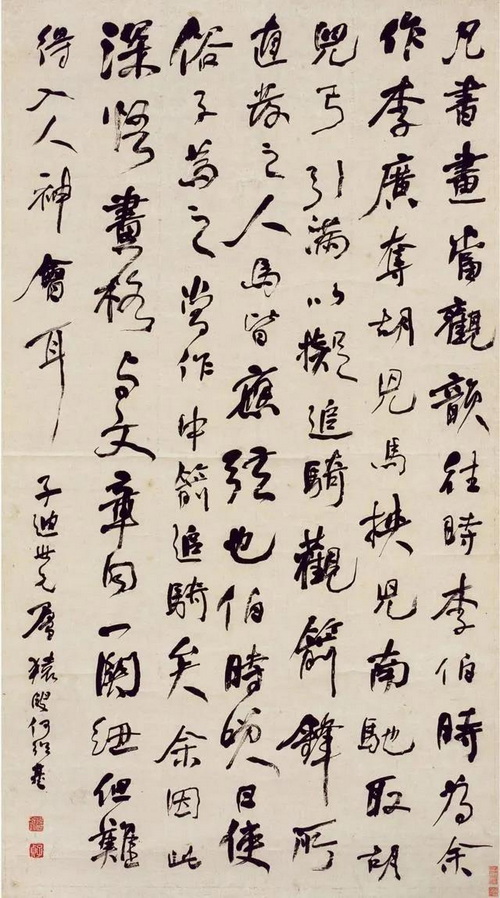 凡書畫當觀韻往時李伯時為余
作李廣奪胡兒馬挾兒南馳取胡
兒弓引滿以擬追騎觀箭鋒所
直發之人馬皆應弦也伯時笑曰使
俗子為之當作中箭追騎矣余因此
深悟畫格與文章同一關紐但難
得入人神會耳
子迪世兄屬 猿叟何紹基